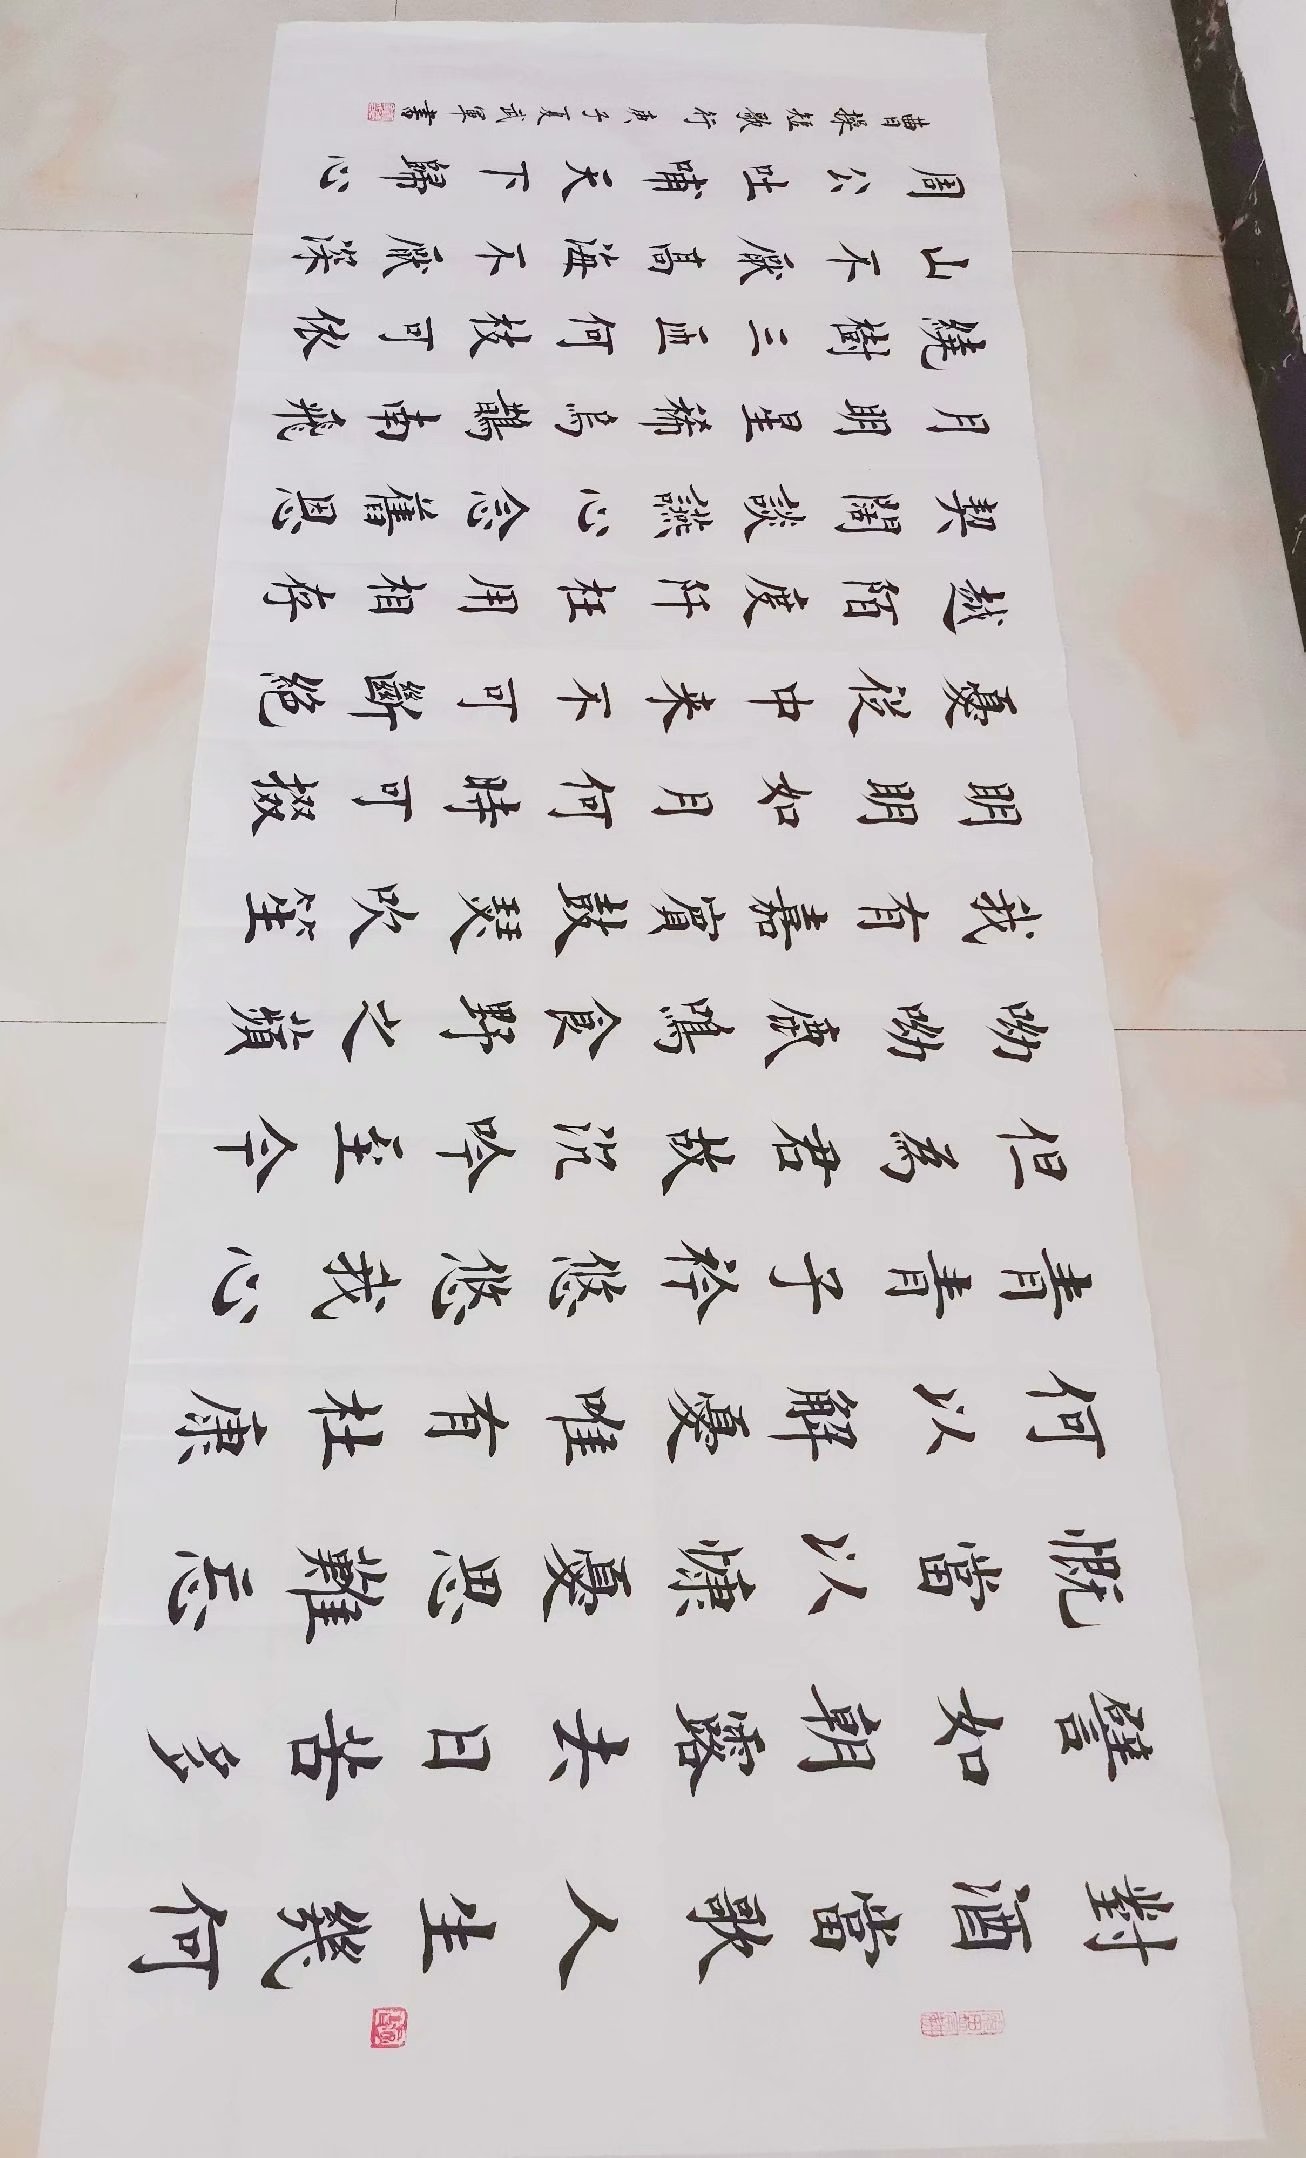 對酒當歌人生幾何
譬如朝露去日苦多
慨當以慷憂思難忘
何以解憂唯有杜康
青青子衿悠悠我心
但為君故沉吟至今
呦呦鹿鳴食野之蘋
我有嘉賓鼓瑟吹笙
明明如月何時可掇
憂從中来不可斷絕
越陌度阡枉用相存
契闊談讌心念舊恩
月明星稀烏鵲南飛
繞樹三匝何枝可依
山不厭高海不厭深
周公吐哺天下歸心
曹操短歌行庚子夏武軍書